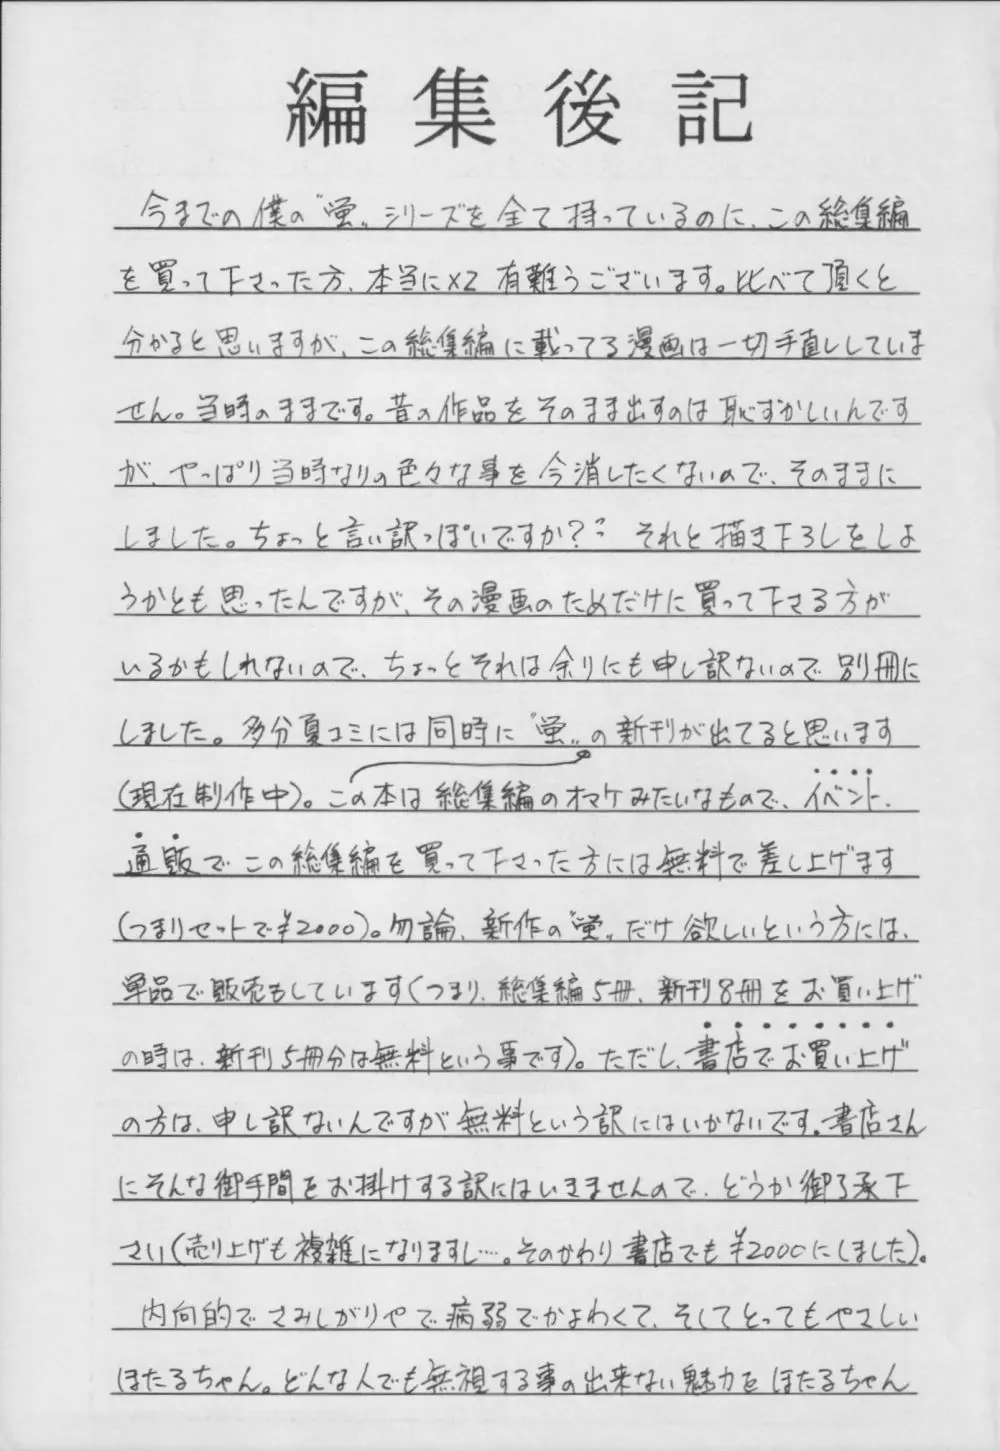 編集後記
今までの僕の〝蛍〟シリーズを全て持っているのに、この総集編
を買って下さった方、本当に×2 有難うございます。比べて頂くと
分かると思いますが、この総集編に載ってる漫画は一切手直ししていま
せん。当時のままです。昔の作品をそのまま出すのは恥ずかしいんです
が、やっぱり当時なりの色々な事を今消したくないので、そのままに
しました。ちょっと言い訳っぽいですか?? それと描き下ろしをしよ
うかとも思ったんですが、その漫画のためだけに買って下さる方が
いるかもしれないので、ちょっとそれは余りにも申し訳ないので別冊に
しました。多分夏コミには同時に〝蛍〟の新刊が出てると思います
(現在制作中)。この本は総集編のオマケみたいなもので、イベント、
通販でこの総集編を買って下さった方には無料で差し上げます
(つまりセットで¥2000)。勿論、新作の〝蛍〟だけ欲しいという方には、
単品で販売もしています(つまり、総集編5冊、新刊8冊をお買い上げ
の時は、新刊5冊分は無料という事です)。ただし、書店でお買い上げ
の方は、申し訳ないんですが無料という訳にはいかないです。書店さん
にそんな御手間をお掛けする訳にはいきませんので、どうか御了承下
さい(売り上げも複雑になりますし…。そのかわり書店でも¥2000にしました)。
内向的でさみしがりやで病弱でかよわくて、そしてとってもやさしい
ほたるちゃん。どんな人でも無視する事の出来ない魅力をほたるちゃん